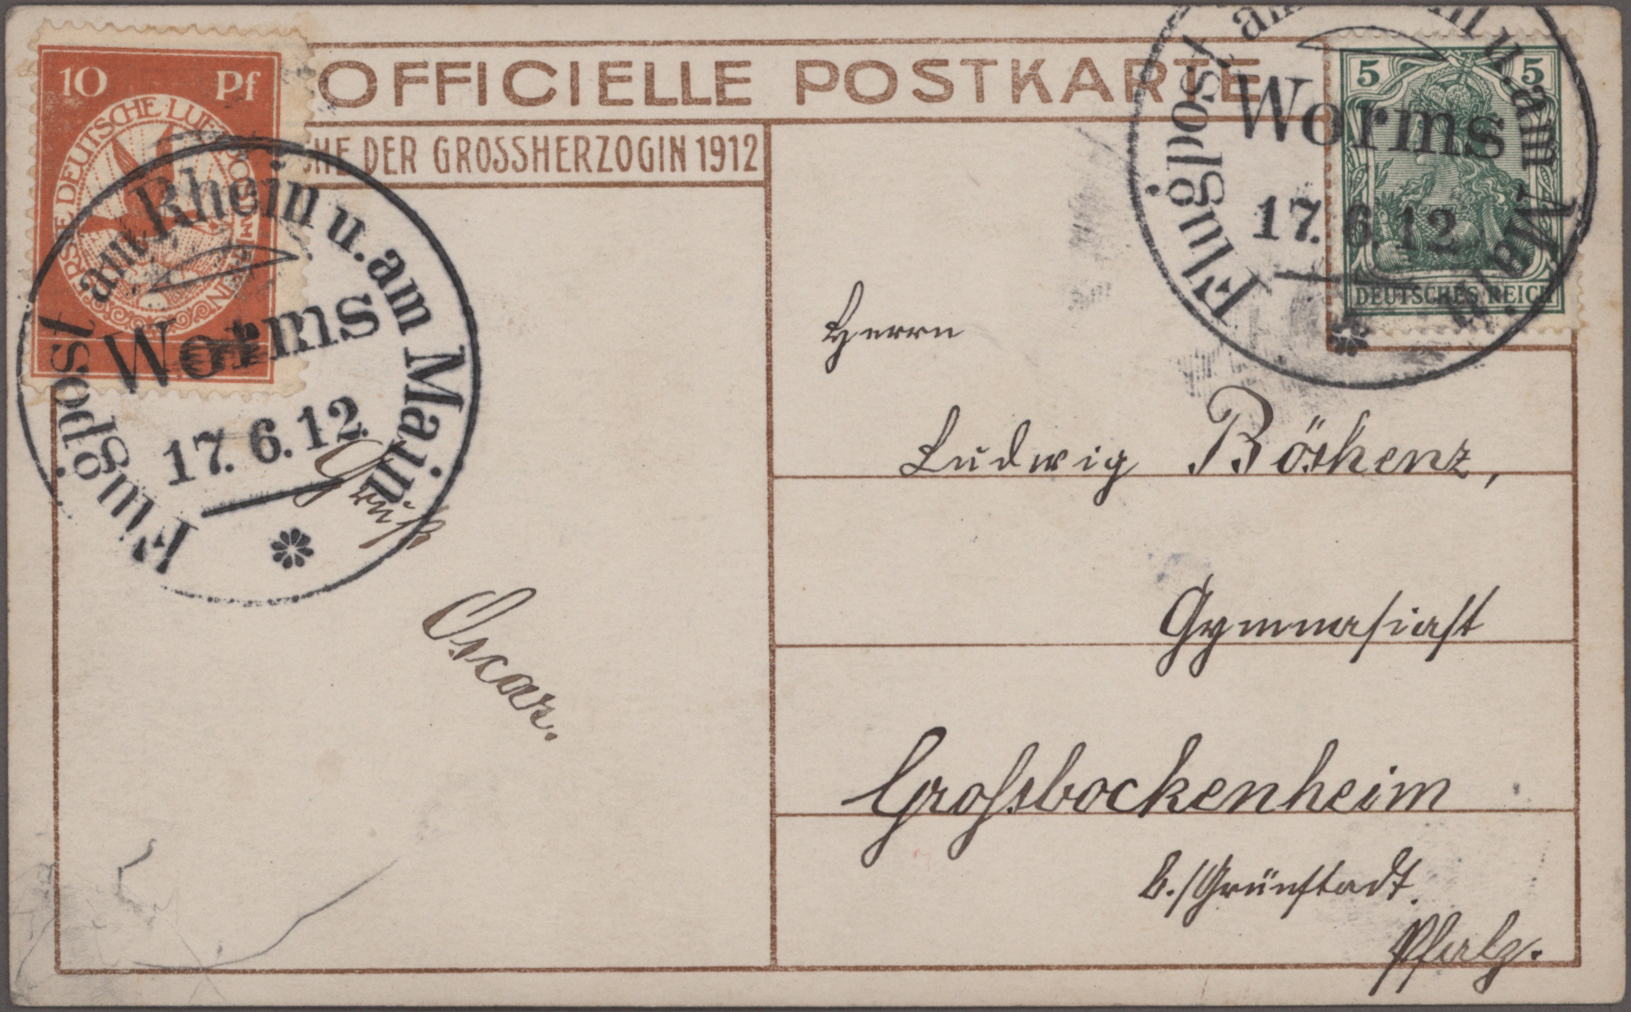 OFFICIELLE POSTKARTE
CHE DER GROSSHERZOGIN 1912
10 Pf
ERSTE DEUTSCHE LUFTPOST AM RHEIN
Flugpost am Rhein u. am Main
Worms
17. 6. 12.
5 5
DEUTSCHES REICH
Flugpost am Rhein u. am Main
Worms
17. 6. 12.
Gruß
Oscar.
Herrn
Ludwig
Gymnasiast
Grossbockenheim
b./Grünstadt.
Pfalz.